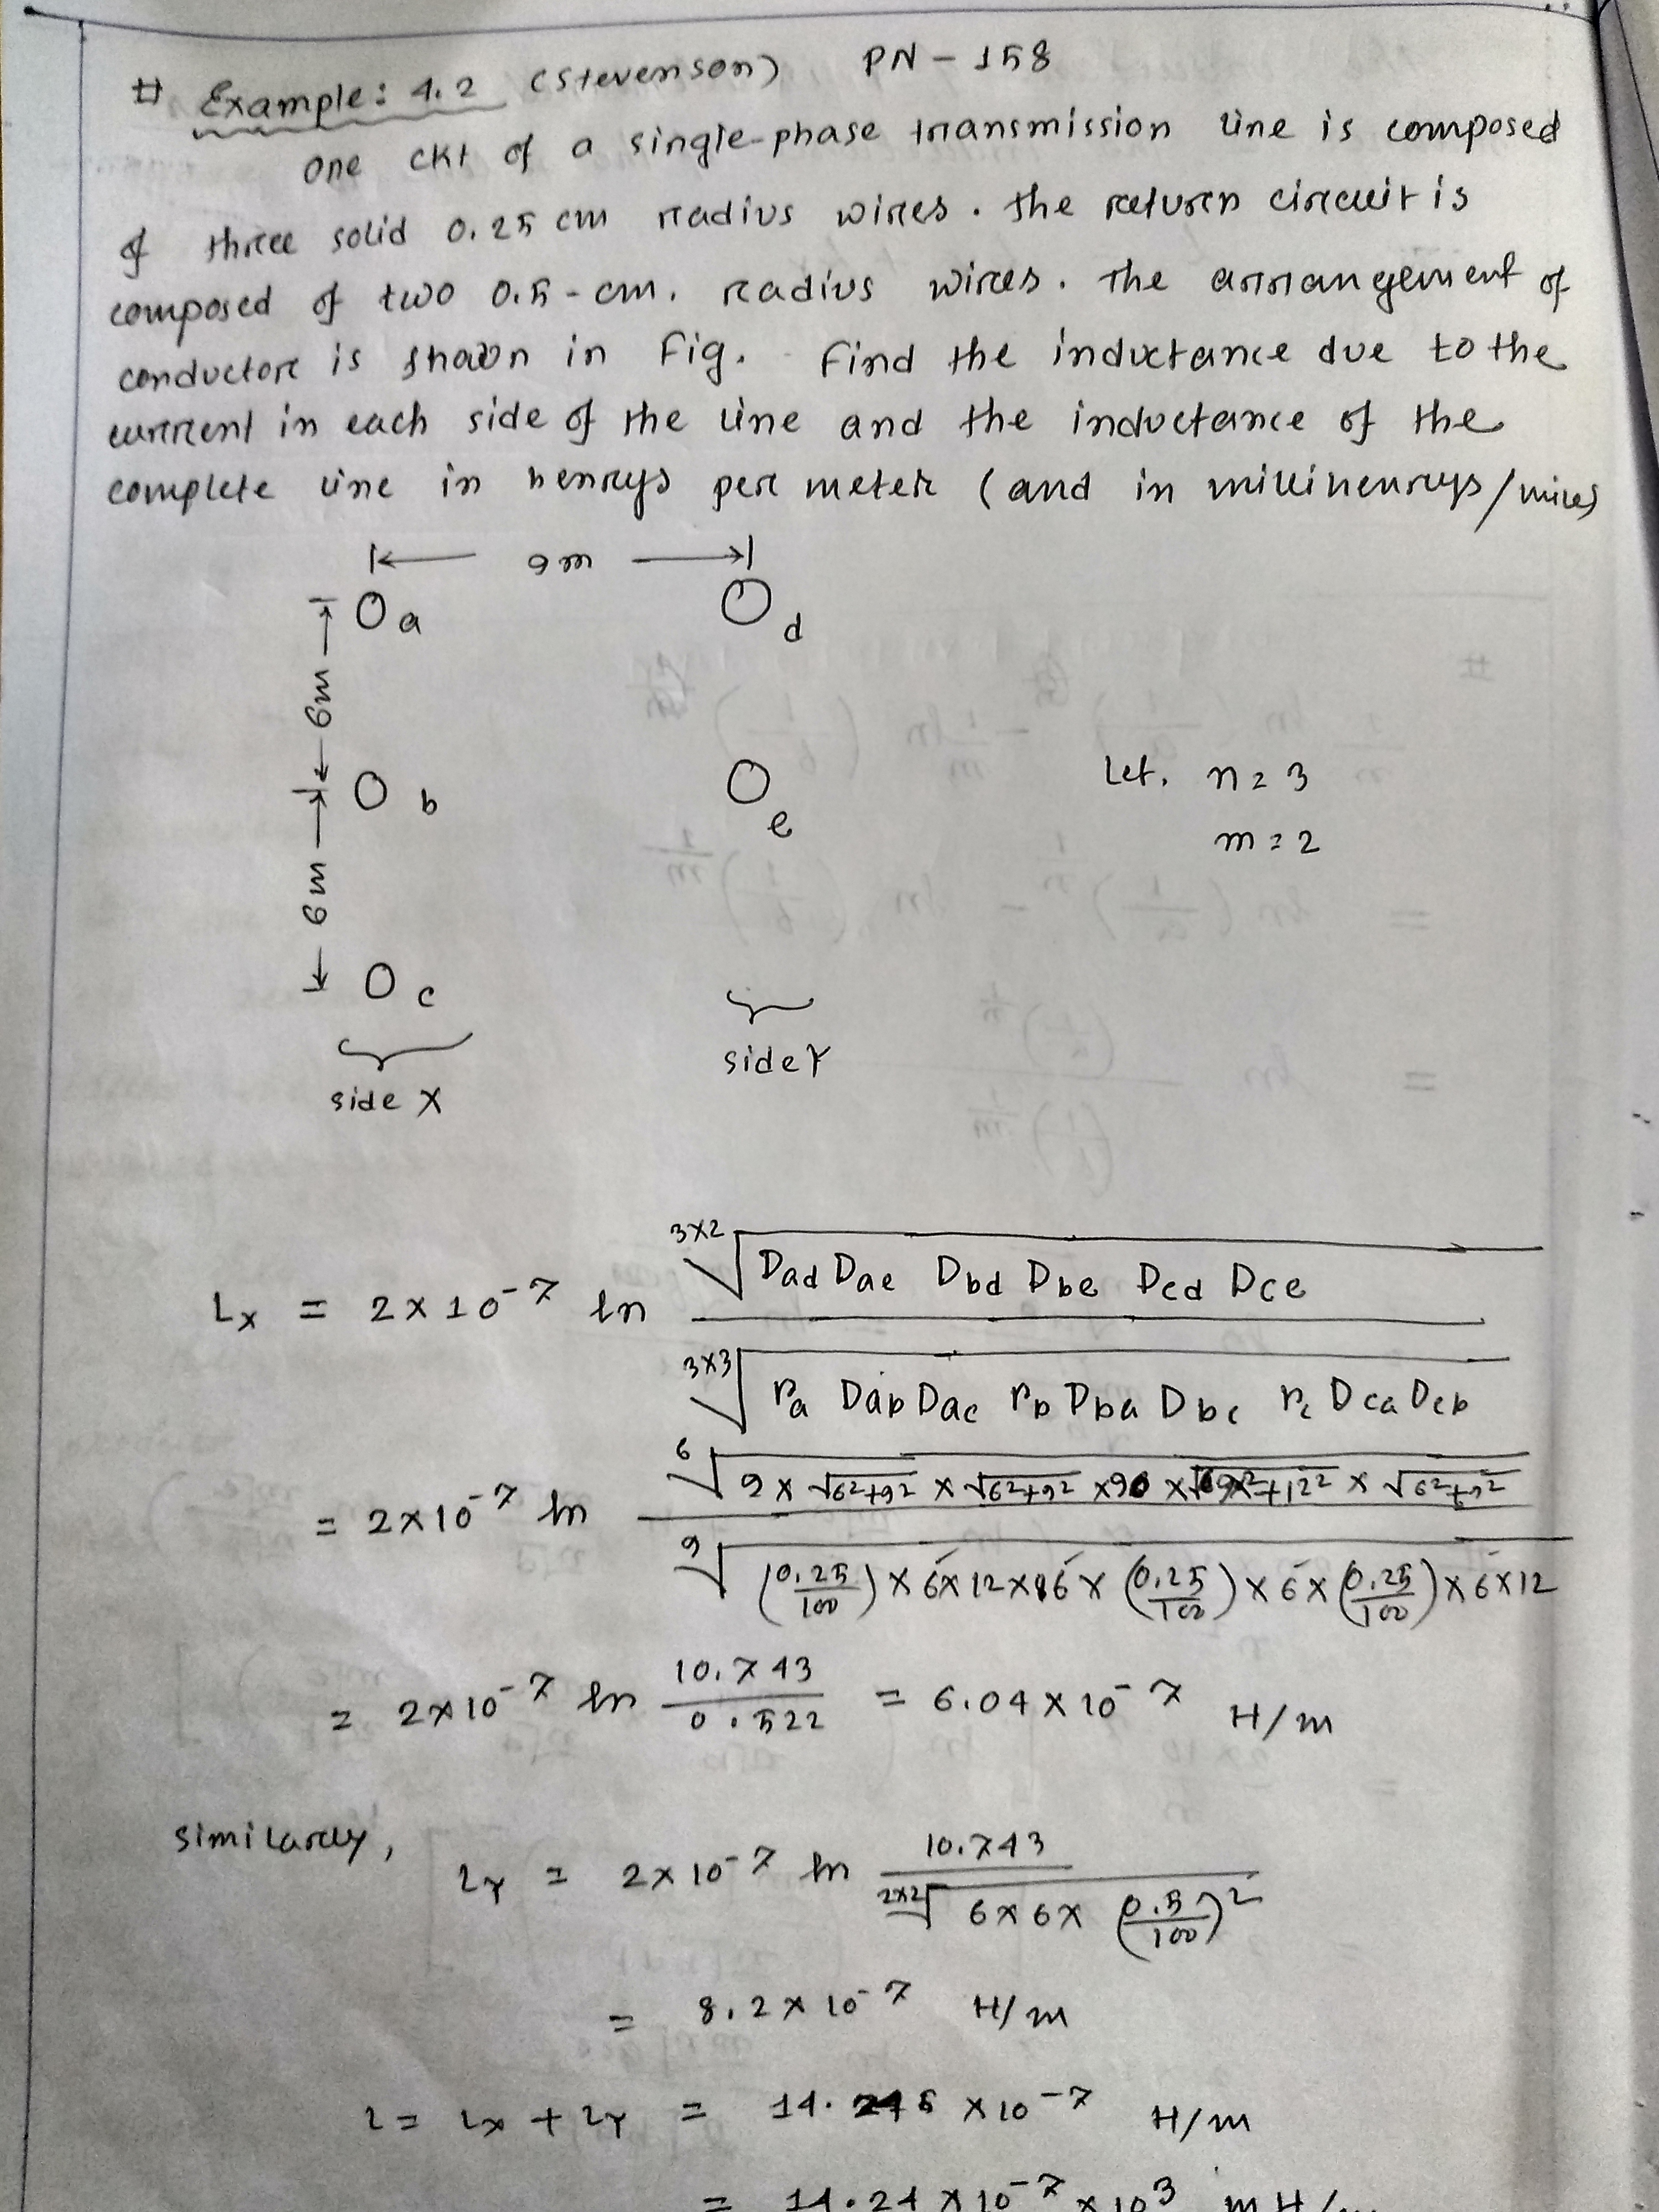 # Example: 4.2 (Stevenson) PN - 158
One ckt of a single-phase transmission line is composed
of three solid 0.25 cm radius wires. The return circuit is
composed of two 0.5-cm. radius wires. The arrangement of
conductor is shown in Fig. Find the inductance due to the
current in each side of the line and the inductance of the
complete line in henrys per meter (and in millihenrys/miles)
9 m
a d
6m
b e
Let, n = 3
m = 2
6m
c
side X side Y
Lx = 2 × 10^-7 ln (^{3×2}√(Dad Dae Dbd Dbe Dcd Dce)) / (^{3×3}√(ra Dab Dac rb Dba Dbc rc Dca Dcb))
= 2×10^-7 ln (^6√(9 × √(6²+9²) × √(6²+9²) × 9 × √(9²+12²) × √(6²+9²))) / (^9√((0.25/100) × 6×12×6× (0.25/100) × 6 × (0.25/100) × 6×12))
= 2×10^-7 ln 10.743/0.522 = 6.04 × 10^-7 H/m
Similarly,
LY = 2×10^-7 ln 10.743 / (^{2×2}√(6×6× (0.5/100)²))
= 8.2 × 10^-7 H/m
L = Lx + LY = 14.245 × 10^-7 H/m
= 14.24 × 10^-7 × 10^3 mH/